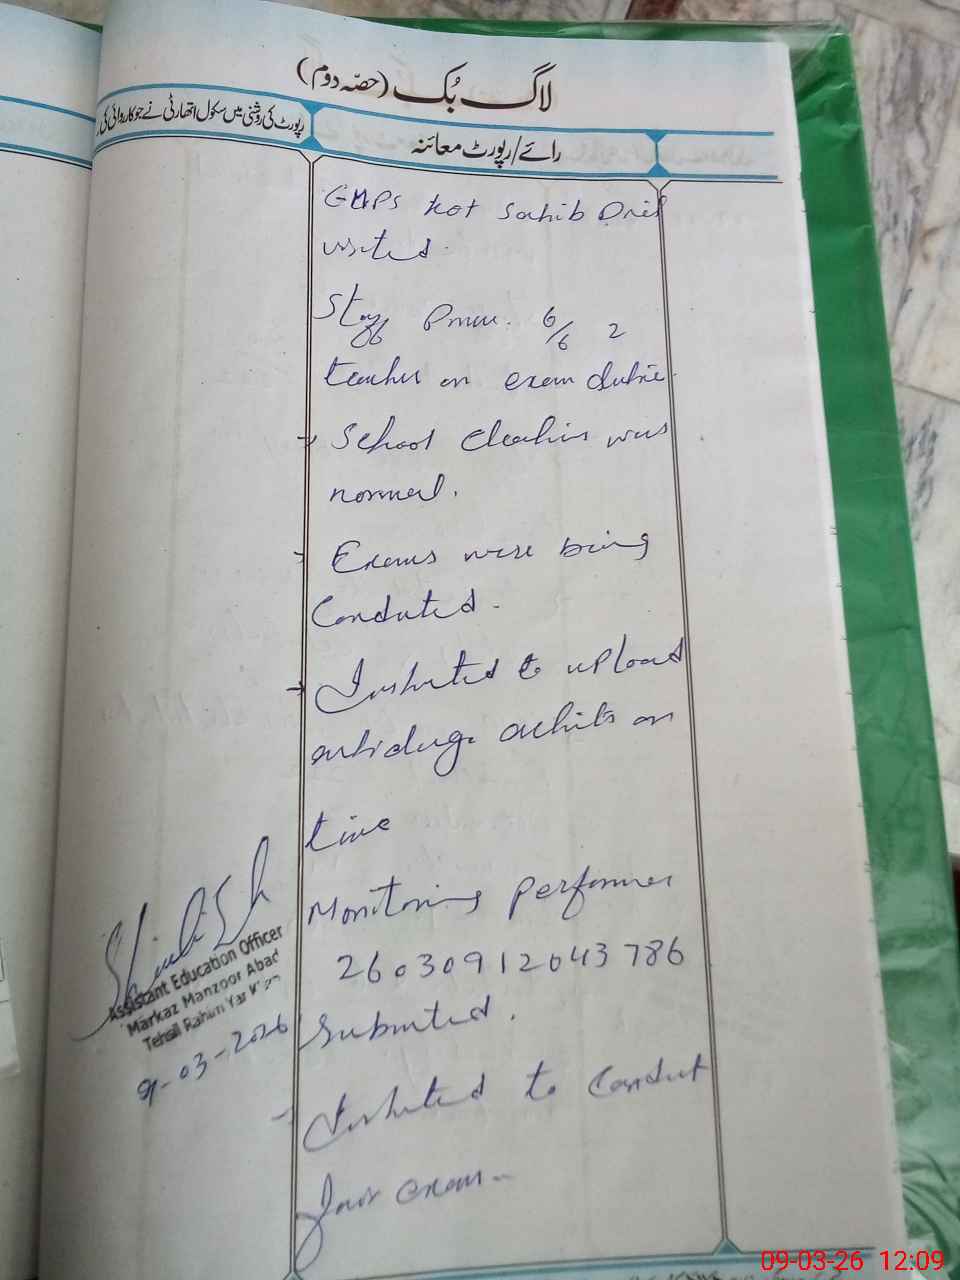 لاگ بُک (حصّہ دوم)
رپورٹ کی روشنی میں سکول اتھارٹی نے جو کاروائی کی
رائے/رپورٹ معائنہ
GMPS Kot Sahib Dril
visited.
Staff 6/6 2
teacher on exam dutie
School was
normal.
Exams were being
Conduted.
to upload
on
time
Monitoring
26030912043786
Submitted.
to Conduct
exam.
Assistant Education Officer
Markaz Manzoor Abad
Tehsil Rahim Yar
9-03-2026
09-03-26 12:09